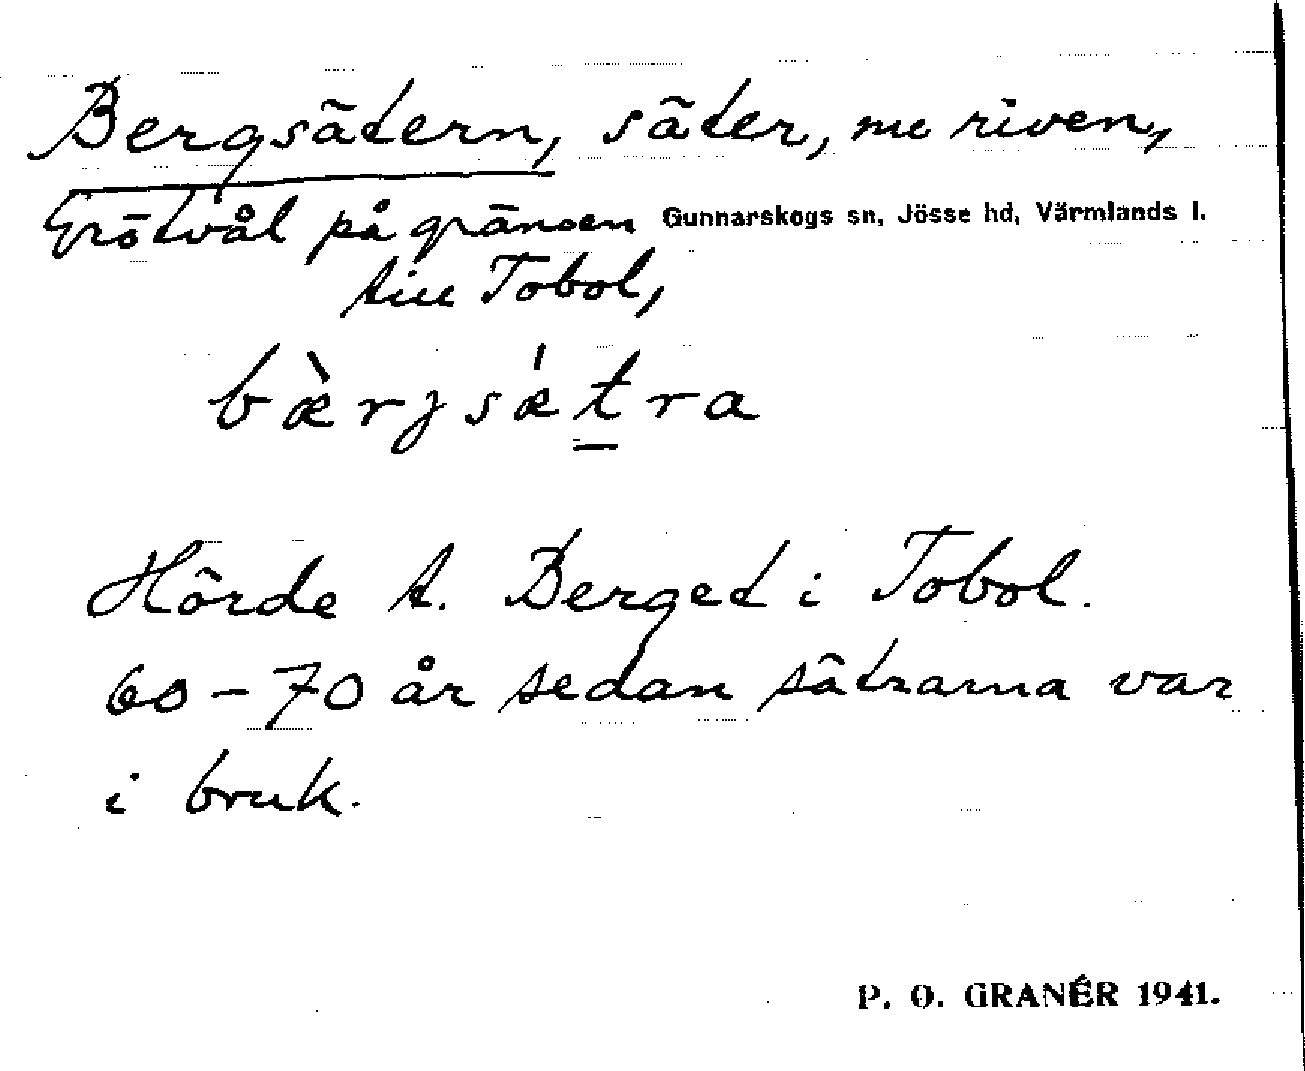 Bergsätern, säter, nu riven,
Grötvål på gränsen Gunnarskogs sn, Jösse hd, Värmlands l.
till Tobol,
bæ̀rjsǽtra
Hörde t. Berget i Tobol.
60-70 år sedan sätrarna var
i bruk.
P. O. GRANÉR 1941.